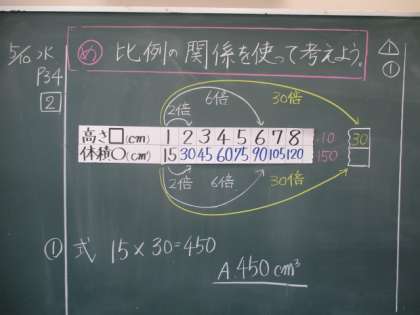 5/10 水
P34
2
め 比例の関係を使って考えよう。
1
2倍 6倍 30倍
高さ□(cm) 1 2 3 4 5 6 7 8 10 30
体積○(cm) 15 30 45 60 75 90 105 120 150
2倍 6倍 30倍
① 式 15×30=450
A.450cm³